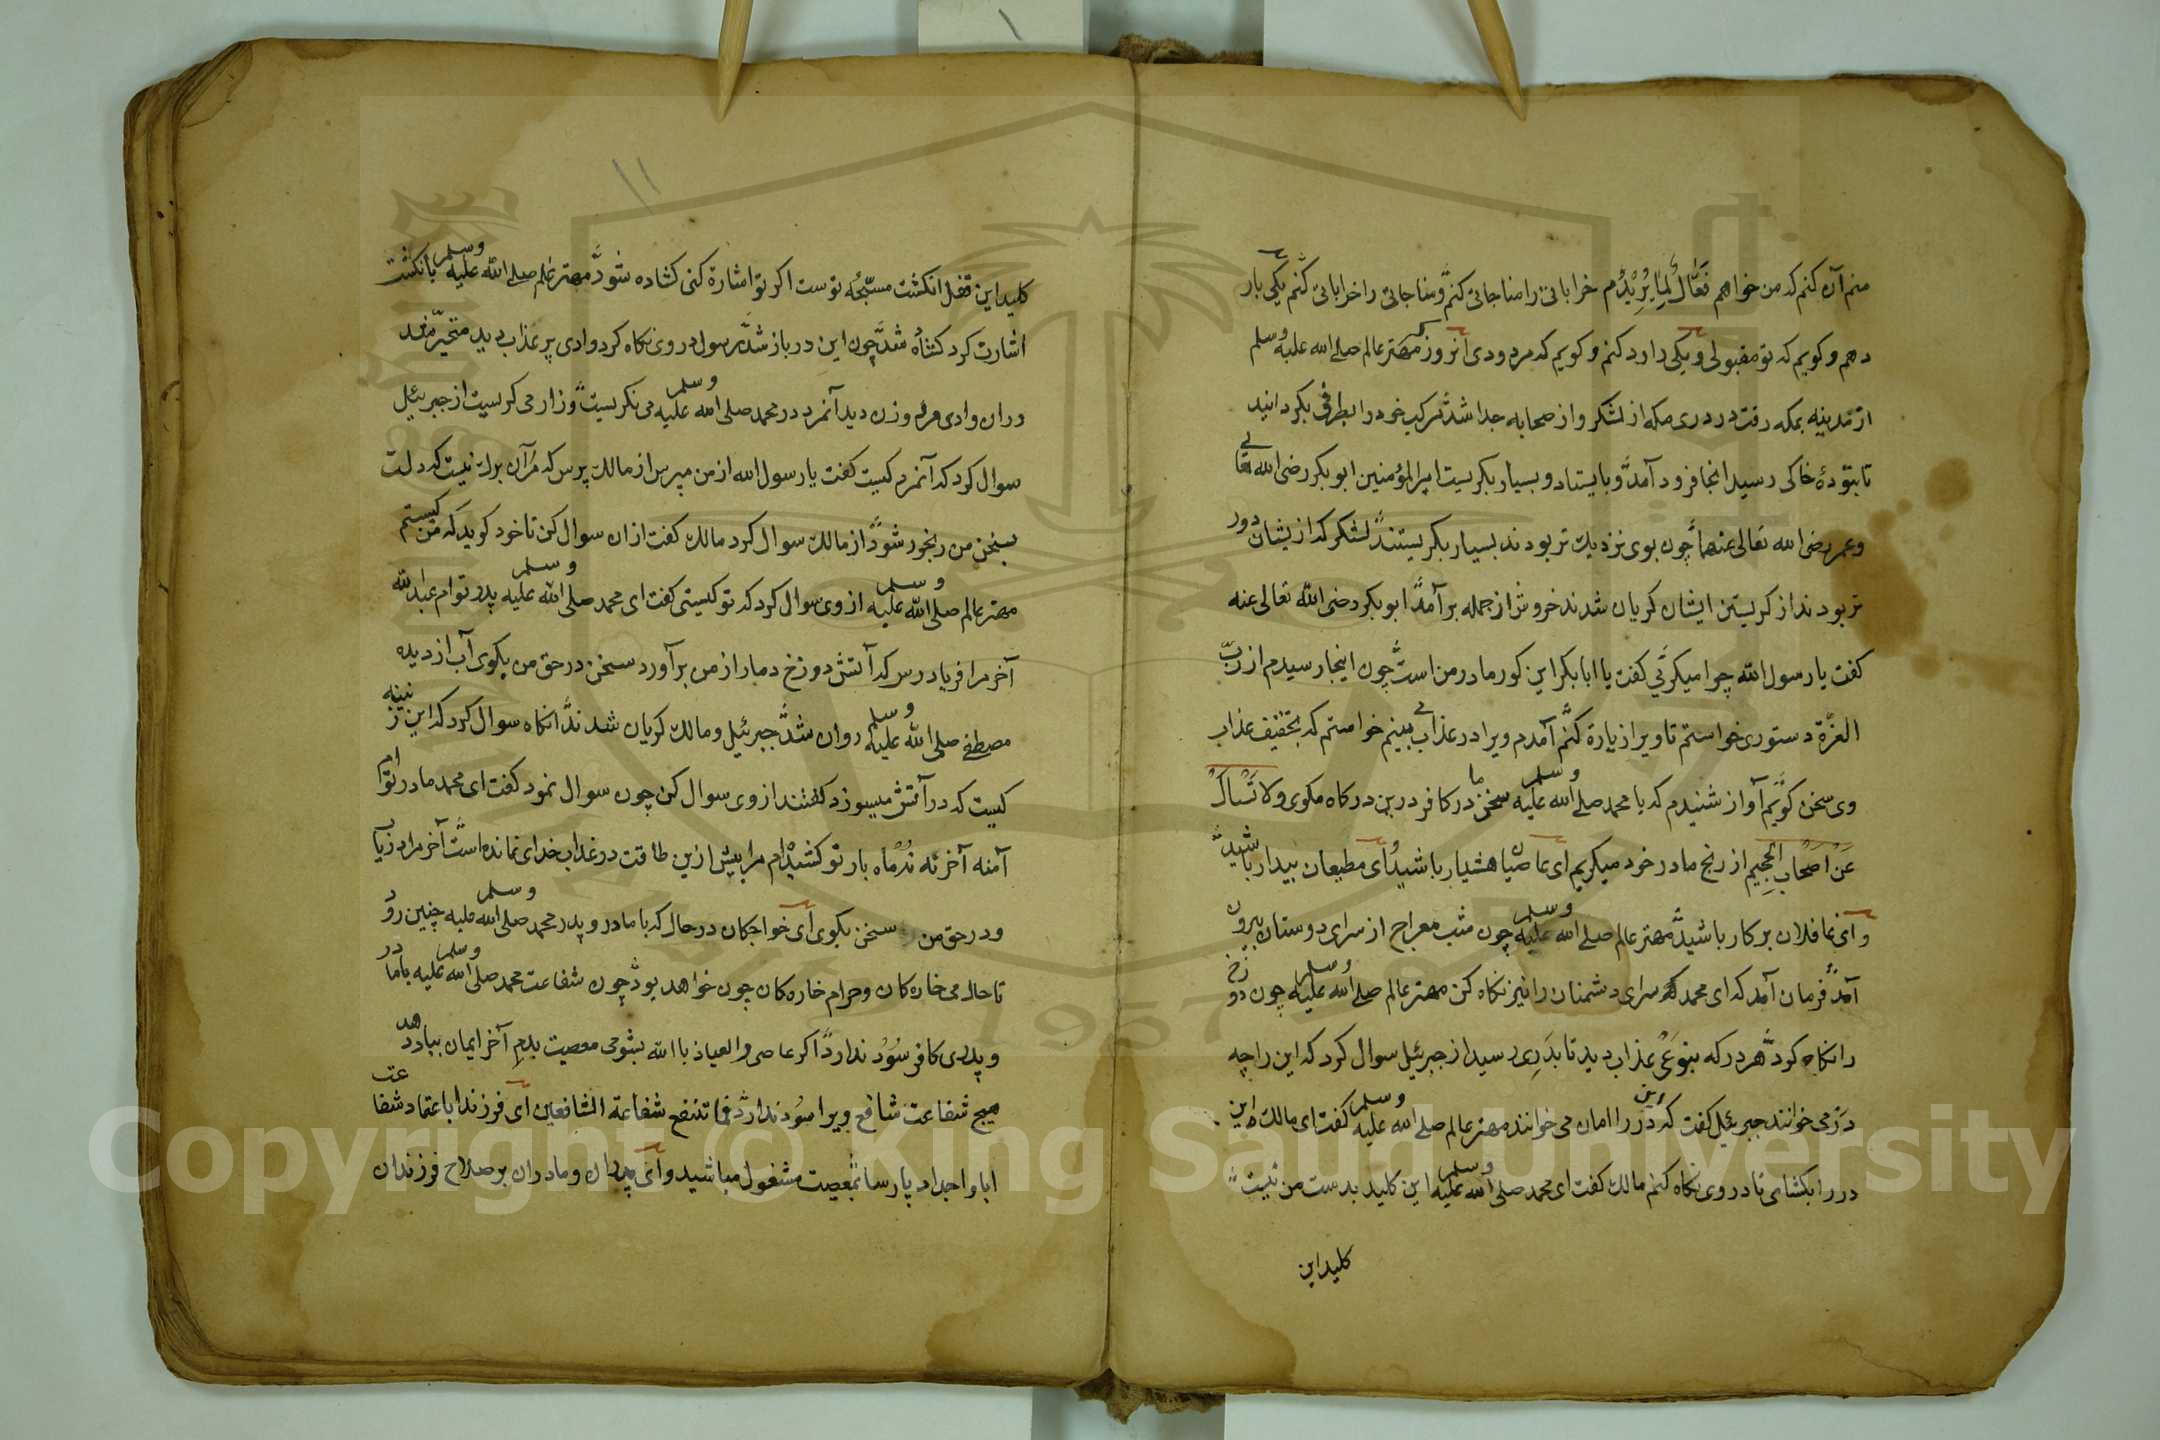 منم آن کنم که من خواهم فَعَّالٌ لِمَا یُرِیْدُ م خراباتی را مناجاتی کنم و مناجاتی را خراباتی کنم یکی بار
دهم و کویم که تو مقبولی و یکی را رد کنم و کویم که مردودی آنروز مهتر عالم صلی الله علیه وسلم
از مدینه بمکه رفت در دری مکه از لشکر و از صحابه جدا شد مرکب خود را بطرفی بکردانید
تا بتودهٔ خاکی رسید انجا فرود آمد و بایستاد و بسیار بکریست امیر المؤمنین ابوبکر رضی الله تعالی
وعمر رضی الله تعالی عنهما چون بوی نزدیك تر بودند بسیار بکریستند لشکر که از یشان دور
تر بودند از کریستن ایشان کریان شدند خروش از جمله بر آمد ابوبکر رضی الله تعالی عنه
کفت یا رسول الله چرا میکرئی کفت یا ابا بکر این کور مادر من است چون اینجا رسیدم از ربّ
العزّة دستوری خواستم تا ویرا زیارة کنم آمدم ویرا در عذاب بینم خواستم که بتخفیف عذاب
وی سخن کویم آواز شنیدم که یا محمد صلی الله علیه وسلم سخن در کافر درین درکاه ما مکوی ولا تُسْأَلُ
عَنْ اَصْحَابِ الْجَحِیمِ از رنج مادر خود میکریم ای عاصیان هشیار باشید ای مطیعان بیدار باشید
و ای غافلان بر کار باشید مهتر عالم صلی الله علیه وسلم چون شب معراج از سرای دوستان بیرون
آمد فرمان آمد که ای محمد که سرای دشمنان را نیز نکاه کن مهتر عالم صلی الله علیه وسلم چون دوزخ
را نکاه کرد هر در که بنوعی عذاب دید تا بدری رسید از جبرئیل سوال کرد که این را چه
در می خوانند جبرئیل کفت که این در را امان می خوانند مهتر عالم صلی الله علیه وسلم کفت ای مالك این
در را بکشای تا در وی نکاه کنم مالك کفت ای محمد صلی الله علیه وسلم این کلید بدست من نیست
کلید این
۱۱
کلید این قفل انکشت مسبّحهٔ توست اکر تو اشارة کنی کشاده شود مهتر عالم صلی الله علیه وسلم بانکشت
اشارت کرد کشاده شد چون این در باز شد رسول در وی نکاه کرد وادی پر عذاب دید متحیّر ماند
دران وادی مرد و زن دید آنمرد در محمد صلی الله علیه وسلم می نکریست و زار می کریست از جبرئیل
سوال کرد که آنمرد کیست کفت یا رسول الله از من مپرس از مالك پرس که مرا آن برك نیست که دلت
بسخن من رنجور شود از مالك سوال کرد مالك کفت ازان سوال کن تا خود کوید که من کیستم
مهتر عالم صلی الله علیه وسلم از وی سوال کرد که تو کیستی کفت ای محمد صلی الله علیه وسلم پدر توام عبدالله
آخر مرا فریاد رس که آتش دوزخ دمار از من برآورد سخن در حق من بکوی آب از دیده
مصطفی صلی الله علیه وسلم روان شد جبرئیل و مالك کریان شدند انکاه سوال کرد که این زنینه
کیست که در آتش میسوزد کفتند از وی سوال کن چون سوال نمود کفت ای محمد مادر توام
آمنه آخر نه نُه ماه بار تو کشیده ام مرا بیش ازین طاقت در عذاب خدای نمانده است آخر مرا دریاب
و در حق من سخن بکوی ای خواجکان در حال که با مادر و پدر محمد صلی الله علیه وسلم چنین رود
تا حال می خاره کان و حرام خاره کان چون خواهد بود چون شفاعت محمد صلی الله علیه وسلم با مادر
و پدری کافر سُوْد ندارد اکر عاصی والعیاذ بالله بشومی معصیت بدم آخر ایمان بباد دهد
هیچ شفاعت شافع ویرا سوْد ندارد فما تنفع شفاعة الشافعین ای فرزندا باعتماد شفاعت
ابا و اجداد پارسا بمعصیت مشغول مباشید و ای پدران و مادران بر صلاح فرزندان
Copyright © King Saud University
1957